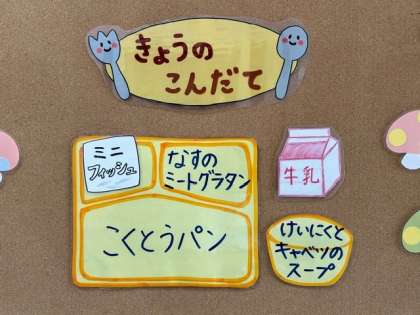 きょうの
こんだて
ミニ
フィッシュ
なすの
ミートグラタン
こくとうパン
牛乳
けいにくと
キャベツの
スープ